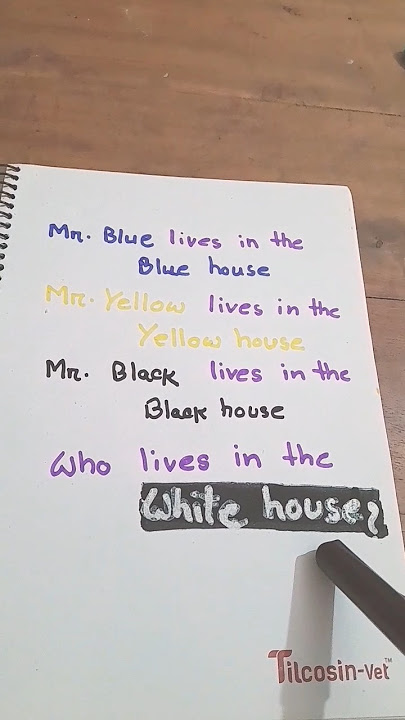 Mr. Blue lives in the
Blue house
Mr. Yellow lives in the
Yellow house
Mr. Black lives in the
Black house
Who lives in the
White house?
Tilcosin-Vet™